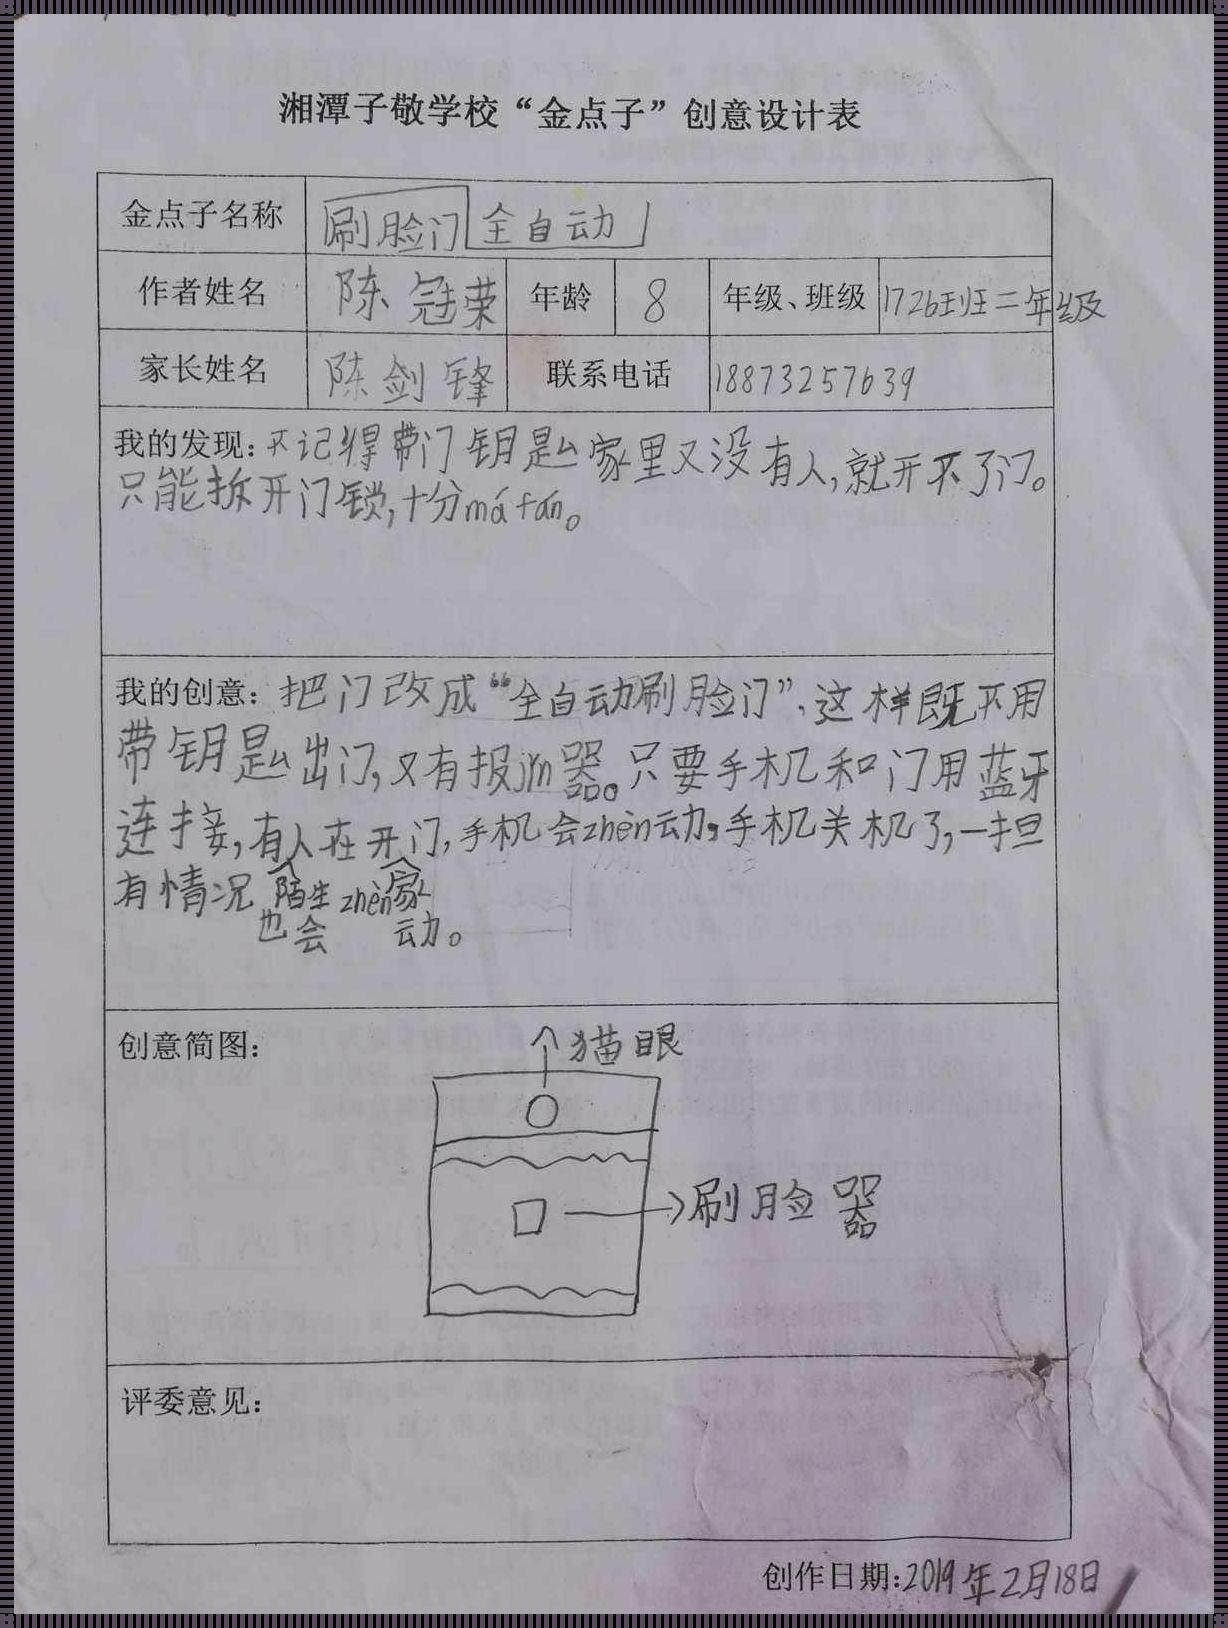 湘潭子敬学校“金点子”创意设计表
金点子名称 刷脸门 全自动
作者姓名 陈冠荣 年龄 8 年级、班级 1726班二年级
家长姓名 陈剑锋 联系电话 18873257639
我的发现：不记得带门钥匙家里又没有人,就开不了门。
只能拆开门锁,十分máfán。
我的创意：把门改成“全自动刷脸门”,这样既不用
带钥匙出门,又有报jǐn器。只要手机和门用蓝牙
连接,有人在开门,手机会zhèn动,手机关机了,一担
有情况 陌生 zhèn家
也会 动。
创意简图：
猫眼
刷脸器
评委意见：
创作日期:2019年2月18日